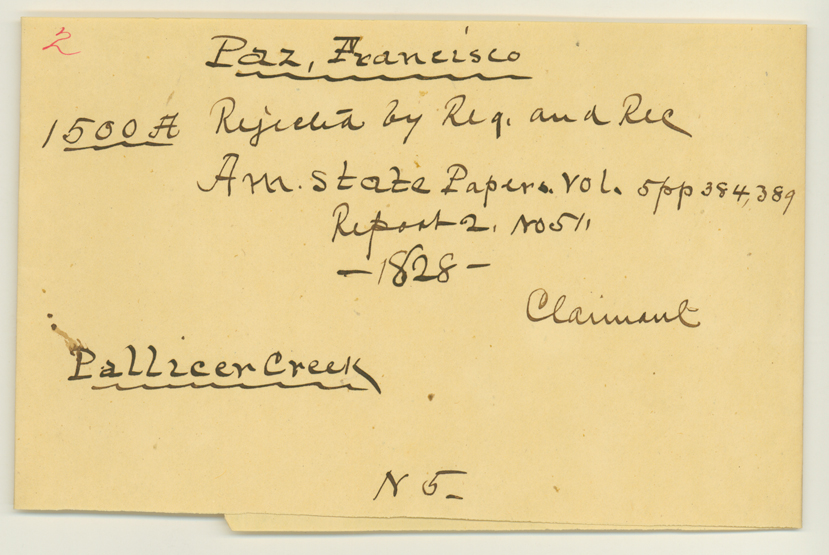 2
Paz, Francisco
1500 A Rejected by Reg. and Rec
Am. State Papers. Vol. 5 pp 384, 389
Report 2. No 511
- 1828 -
Claimant
Pallicer Creek
N 5-